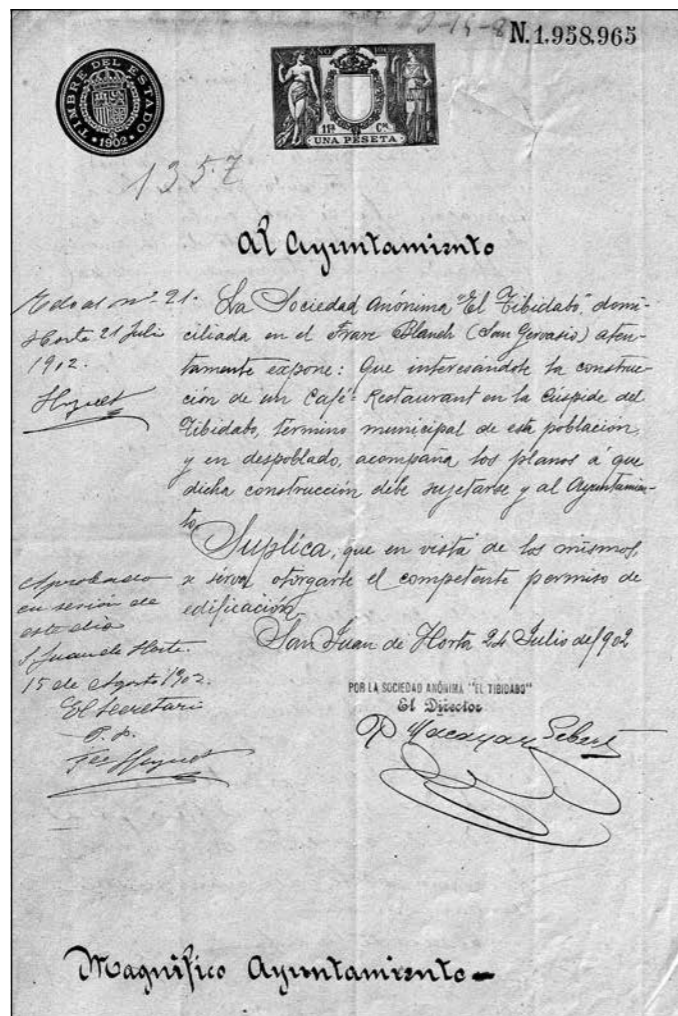 2-14-8
N. 1.958.965
TIMBRE DEL ESTADO
1902
AÑO 190
1ª Cª
UNA PESETA
1357
Al Ayuntamiento
La Sociedad Anónima "El Tibidabo", domi-
ciliada en el Frare Blanch (San Gervasio) aten-
tamente expone: Que interesándole la construc-
ción de un Café-Restaurant en la Cúspide del
Tibidabo, término municipal de esta población,
y en despoblado, acompaña los planos á que
dicha construcción debe sujetarse y al Ayuntamien-
to,
Suplica, que en vista de los mismos,
se sirva otorgarle el competente permiso de
edificación.
San Juan de Horta 24 Julio de 1902
POR LA SOCIEDAD ANÓNIMA "EL TIBIDABO"
El Director
nº 21.
Horta 21 Juli
1902.
Huguet
Aprobado
en sesión de
este dia
S. Juan de Horta.
15 de Agosto 1902.
El Secretari
Huguet
Magnífico Ayuntamiento